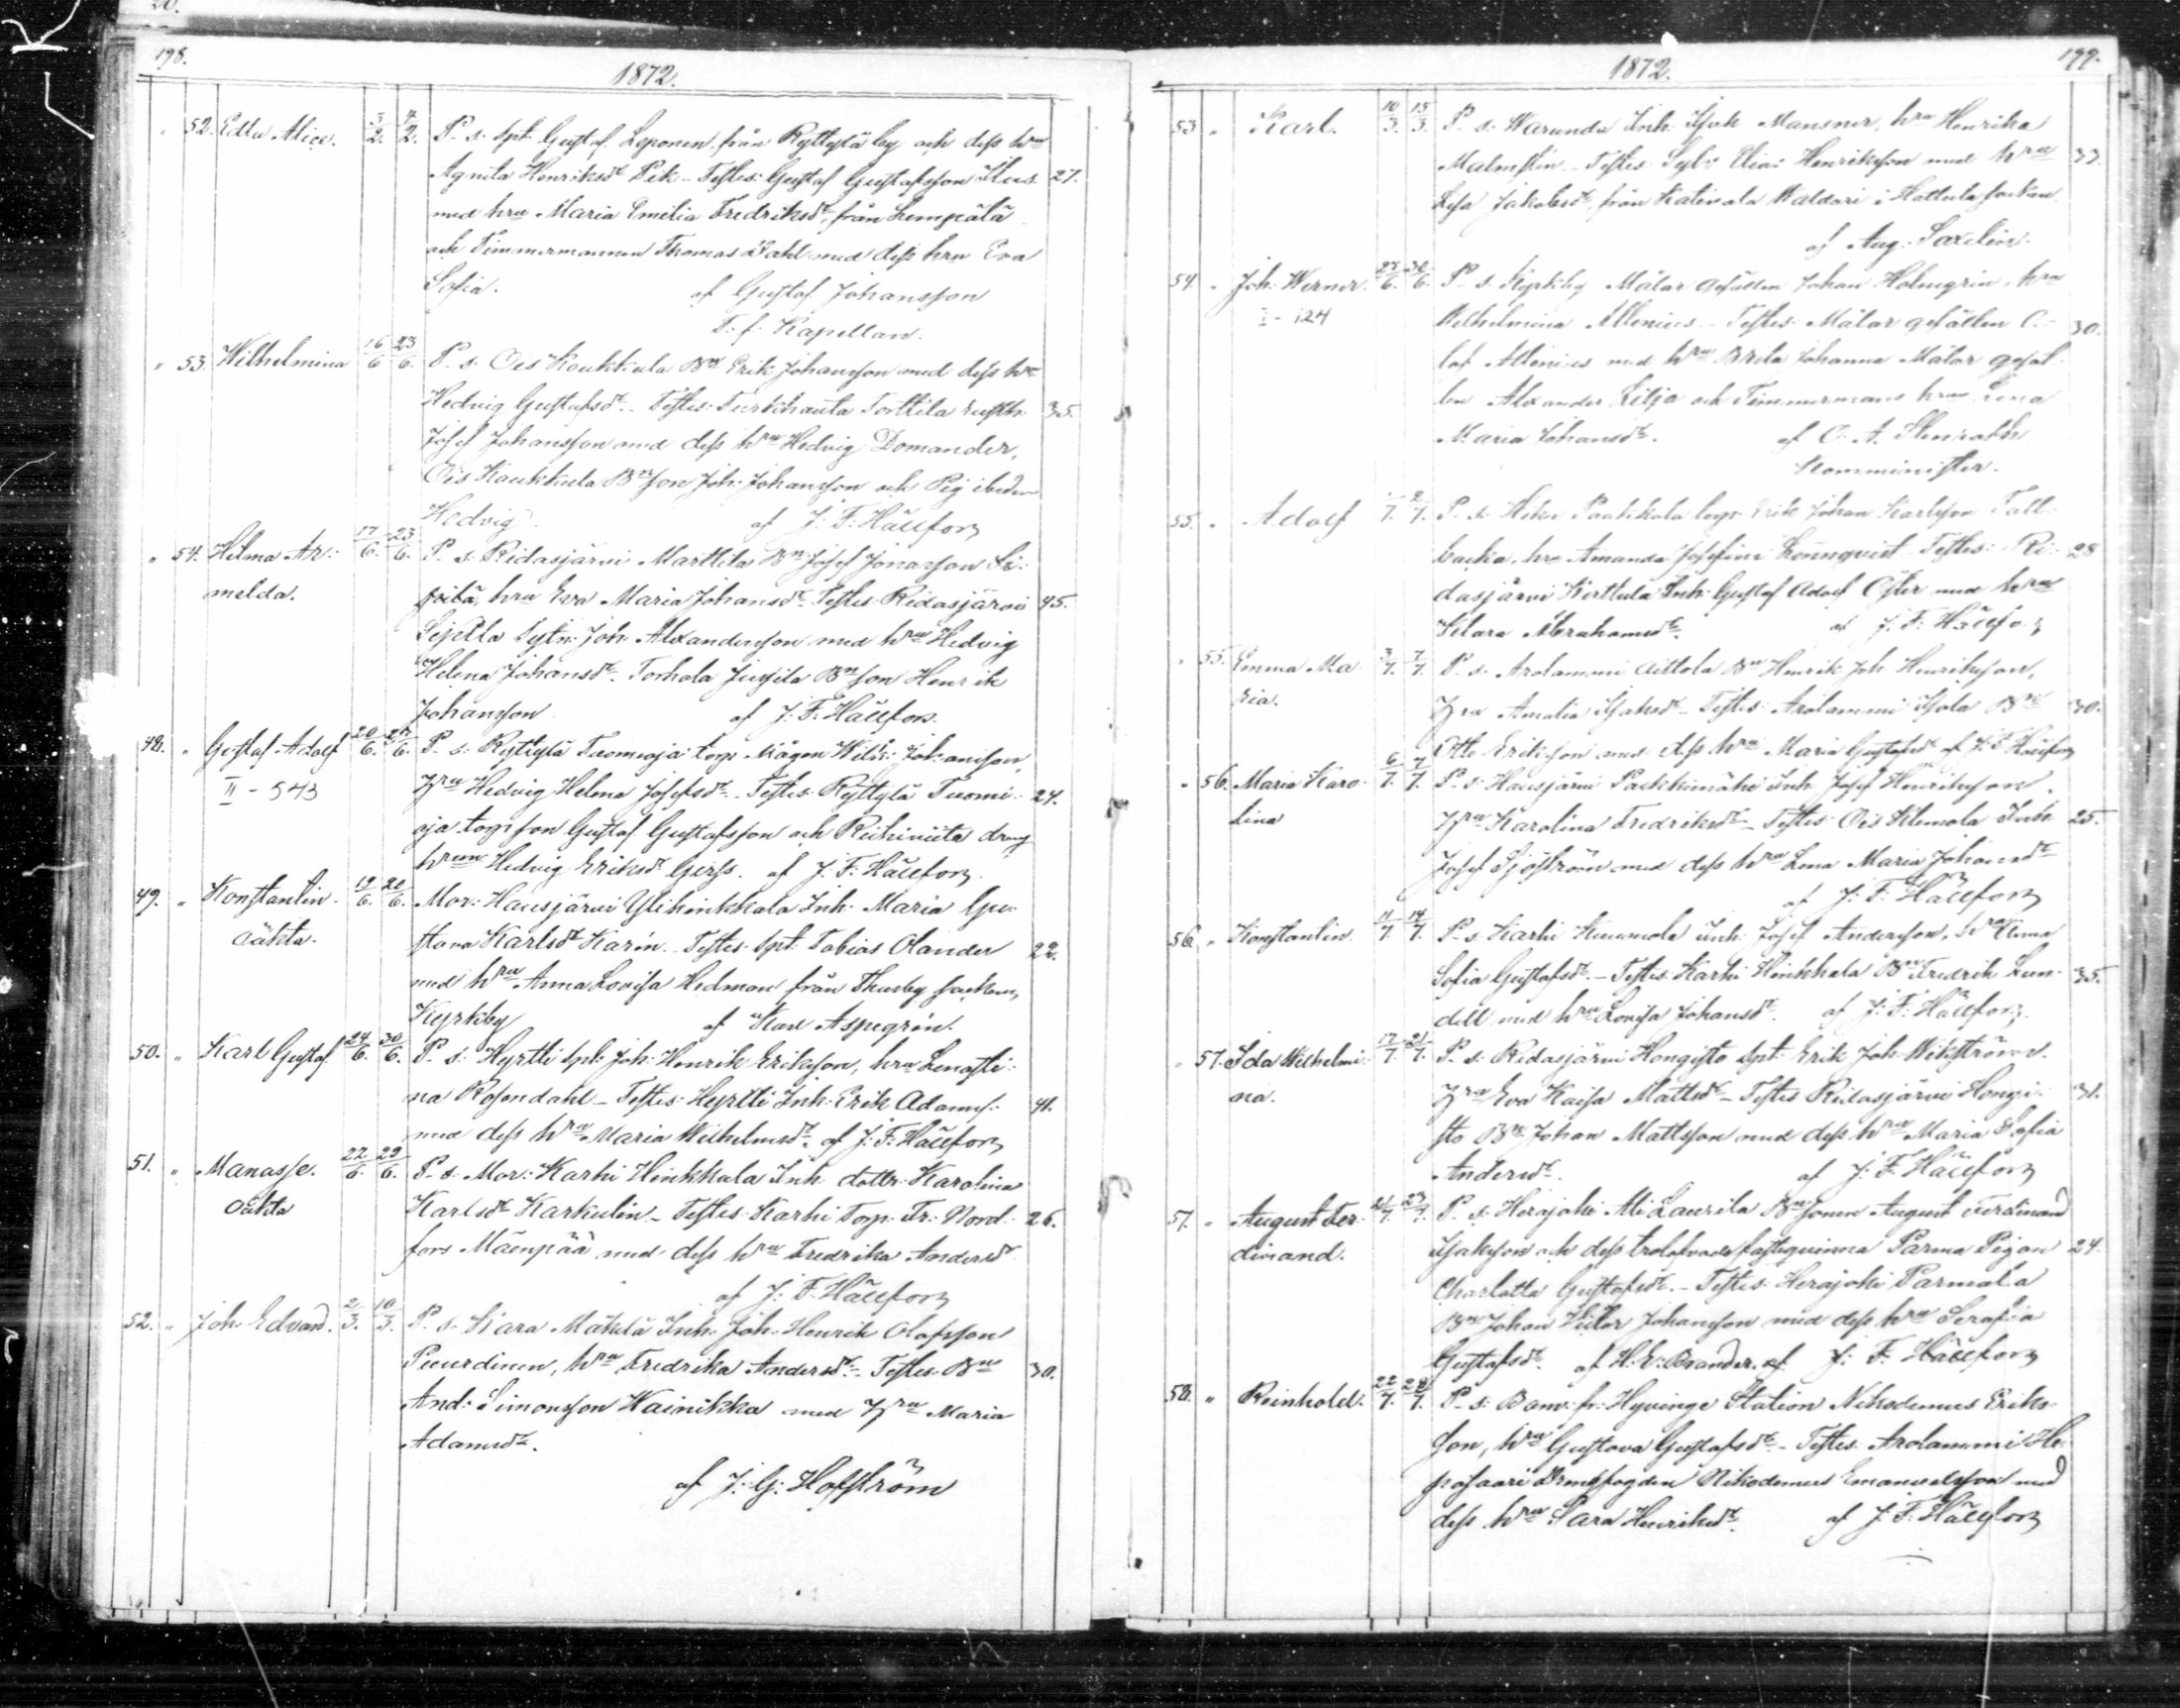 198.
1872.
" 52. Edla Alice. 3/2. 4/2. P. s. Spt. Gustaf Leponen från Ryttylä by och dess hru
Agneta Henriksdr Pek - Testes: Gustaf Gustafsson 27.
med hru Maria Emilia Fredriksdr från Lempälä
och Timmermannen Thomas Dahl med dess hru Eva
Sofia. af Gustaf Johansson
T. f. Kapellan.
" 53. Wilhelmina 16/6 23/6. P. s. Ois Koukkula Bn Erik Johansson med dess hru
Hedvig Gustafsdr. - Testes: Turkhauta Torttila Rusth. 35.
Josef Johansson med dess hru Hedvig Domander,
Ois Koukkula Bnson Joh: Johansson och Pig ibidem
Hedvig. af J: F: Hällfors
" 54. Helma Ar: 17/6. 23/6. P. s. Ridasjärvi Marttila Bn Josef Jonasson
melda. hru Eva Maria Johansdr. Testes: Ridasjärvi 45.
Sytn: Joh: Alexandersson med hru Hedvig
Helena Johansdr. Torhola Bnson Henrik
Johansson af J: F: Hällfors.
48. " Gustaf Adolf 20/6. 6. P. s. Ryttylä Tuomioja torp. Mågen Wilh: Johansson,
II - 543 Hru Hedvig Helena Josefsdr. - Testes: Ryttylä Tuomi: 24.
oja torpson Gustaf Gustafsson och Riihiviita dreng
hrun Hedvig Eriksdr af J: F: Hällfors.
49. " Konstantin. 19/6. 20/6. Mor: Hausjärvi Ylihinkkala Inh: Maria Gu:
oäkta. stava Karlsdr Karin. - Testes: Spt. Tobias Olander 22.
med hru Anna Lovisa Hedman från Thusby socken,
Kyrkby af Karl Aspegrén.
50. " Karl Gustaf 24/6. 30/6. P. s. Hyrtti Spt: Joh: Henrik Eriksson, hru
na Rosendahl - Testes: Hyrtti Inh: Erik Adamss: 41.
med dess hru Maria Wilhelmsdr. af J: F: Hällfors
51. " Manasse. 22/6. 29/6. P. s. Mor: Karhi Hinkkala Inh: dottr. Karolina
oäkta Karlsdr Karkulin - Testes: Karhi Torp. Fr: Nord: 26.
fors Mäenpää med dess hru Fredrika Andersdr.
af J: F: Hällfors
52. " Joh: Edvard. 2/3. 10/3. P. s. Kara Mäkelä Inh: Joh: Henrik Olofsson
hru Fredrika Andersdr. - Testes: Bn 30.
And: Simonsson Wainikka med Hru Maria
Adamsdr.
af J: G: Hofström
199.
1872.
53 " Karl. 10/3. 15/3. P. s. Warunda Inh: Isak Mansner, hru Henrika
Malmsten. - Testes: Sytn: Elias Henriksson med hru 33.
Lisa Jakobsdr från Katinala Waldari i Hattula socken.
af Aug: Saxelin.
54. " Joh: Werner. 6. 30/6. P. s. Kyrkby Målar gesällen Johan Holmgrén, hru
I - 124 Wilhelmina Allenius. - Testes: Målar gesällen O: 30.
lof Allenius med hru Brita Johanna Målar gesäl:
len Alexander Lilja och Timmermans hrun Lena
Maria Johansdr. af C. A. Stenroth
Komminister.
55. " Adolf 1/7. 2/7. P. s. Hikiä Paakkola torp: Erik Johan Karlsson Tall:
backa, hru Amanda Josefina Lönnqvist - Testes: Ri: 28
dasjärvi Kerttula Inh: Gustaf Adolf Öster med hru
Klara Abrahamsdr. af J: F: Hällfors
" 55. Emma Ma 3/7. 7/7. P. s. Arolammi Aittola Bn Henrik Joh: Henriksson,
ria. Hru Amalia Isaksdr - Testes: Arolammi Isola Bn 30.
Otto Eriksson med dess hru Maria Gustafsdr af J: F: Hällfors
" 56. Maria Karo: 6/7. 7/7. P. s. Hausjärvi Inh: Josef Henriksson,
lina Hru Karolina Fredriksdr - Testes: Ois Klemola Inh: 25.
Josef Sjöström med dess hru Lena Maria Johansdr
af J: F: Hällfors
56. " Konstantin. 11/7. 14/7. P. s. Karhi Inh: Josef Andersson, hru Anna
Sofia Gustafsdr. - Testes: Karhi Hinkkala Bn Fredrik Lun: 35.
dell med hru Lovisa Johansdr. af J: F: Hällfors.
" 57. Ida Wilhelmi: 17/7. 21/7. P. s. Ridasjärvi Hongisto Spt. Erik Joh: Wikström.
na. Hru Eva Kaisa Mattsdr - Testes: Ridasjärvi Hongi: 31.
sto Bn Johan Mattsson med dess hru Maria Sofia
Andersdr. af J: F: Hällfors
57. " August Fer: 21/7. 23/7. P. s. Herajoki Ali Laurila Bnsonen August Ferdinand
dinand. Isaksson och dess trolofvade fästeqvinna Parma Pigan 24.
Charlotta Gustafsdr. - Testes: Herajoki Parmala
Bn Johan Viktor Johansson med dess hru Serafia
Gustafsdr. af H: E: Brander. af. J: F: Hällfors
58. " Reinhold. 22/7. 28/7. P. s. Banv: fr: Hyvinge Station Nikodemus Eriks:
son, hru Gustava Gustafsdr - Testes: Arolammi He:
posaari Drengfogden Nikodemus Emanuelsson med
dess hru Sara Henriksdr. af J: F: Hällfors